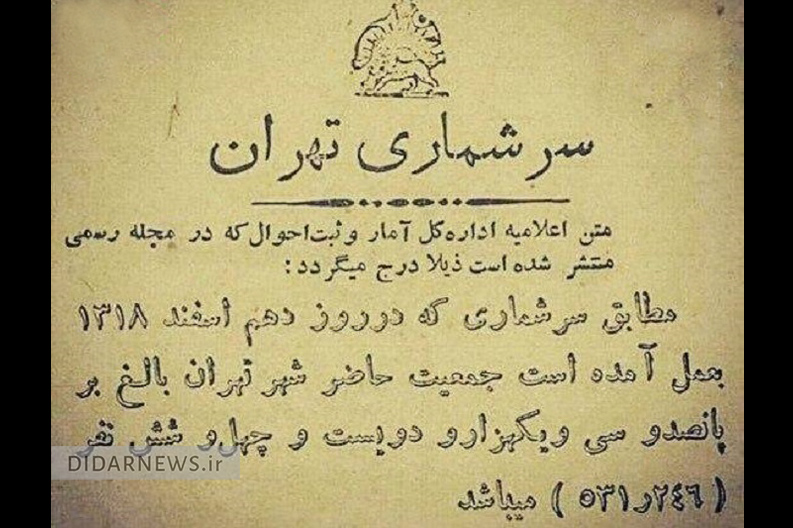 سرشماری تهران
متن اعلامیه اداره کل آمار و ثبت احوال که در مجله رسمی
منتشر شده است ذیلا درج میگردد:
مطابق سرشماری که در روز دهم اسفند ۱۳۱۸
بعمل آمده است جمعیت حاضر شهر تهران بالغ بر
پانصدو سی ویکهزارو دویست و چهل و شش نفر
(۵۳۱ر۲٤٦) میباشد
DIDARNEWS.ir